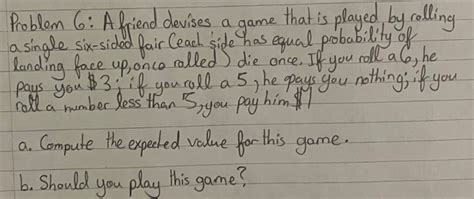 Problem 6: A friend devises a game that is played by rolling
a single six-sided fair (each side has equal probability of
landing face up, once rolled) die once. If you roll a 6, he
pays you $3; if you roll a 5, he pays you nothing; if you
roll a number less than 5, you pay him $1
a. Compute the expected value for this game.
b. Should you play this game?